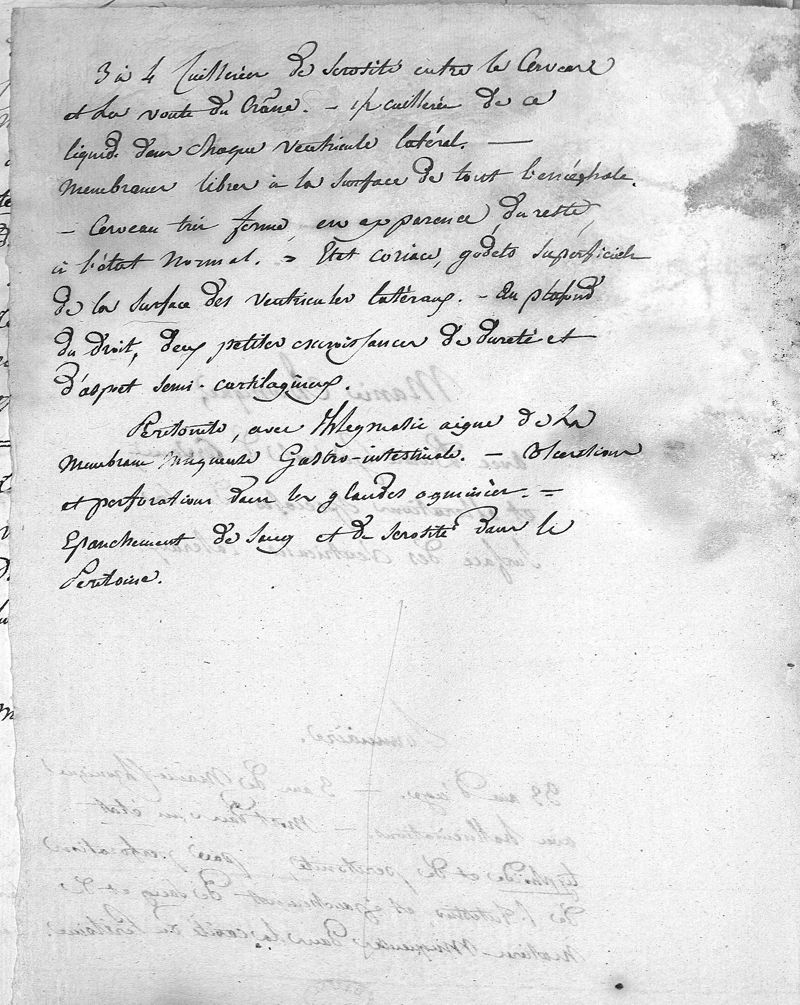 3 à 4 Cuillerées de Serosité entre le Cerveau
et la voute du Crâne. — 1/2 cuillerée de ce
liquide dans chaque ventricule latéral. —
Membranes libres à la surface de tout l'encéphale.
— Cerveau très ferme en apparence, du reste,
à l'état Normal. = Etat coriace, godets superficiels
de la Surface des ventricules latéraux. — Au plafond
du droit, deux petites excroissances de dureté et
d'aspect semi-cartilagineux.
Péritonite, avec Phlegmasie aigue de la
Membrane Muqueuse Gastro-intestinale. — Ulcerations
et perforations dans les glandes agminées. =
Epanchement de sang et de Serosité dans le
Péritoine.